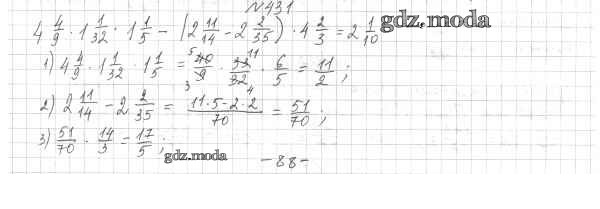 №431
4 4/9 · 1 1/32 · 1 1/5 − (2 11/14 − 2 2/35) · 4 2/3 = 2 1/10 gdz.moda
1) 4 4/9 · 1 1/32 · 1 1/5 = 40/9 · 33/32 · 6/5 = 11/2 ; 5 3 11 4
2) 2 11/14 − 2 2/35 = 11·5−2·2/70 = 51/70 ;
3) 51/70 · 14/3 = 17/5 ; gdz.moda
−88−